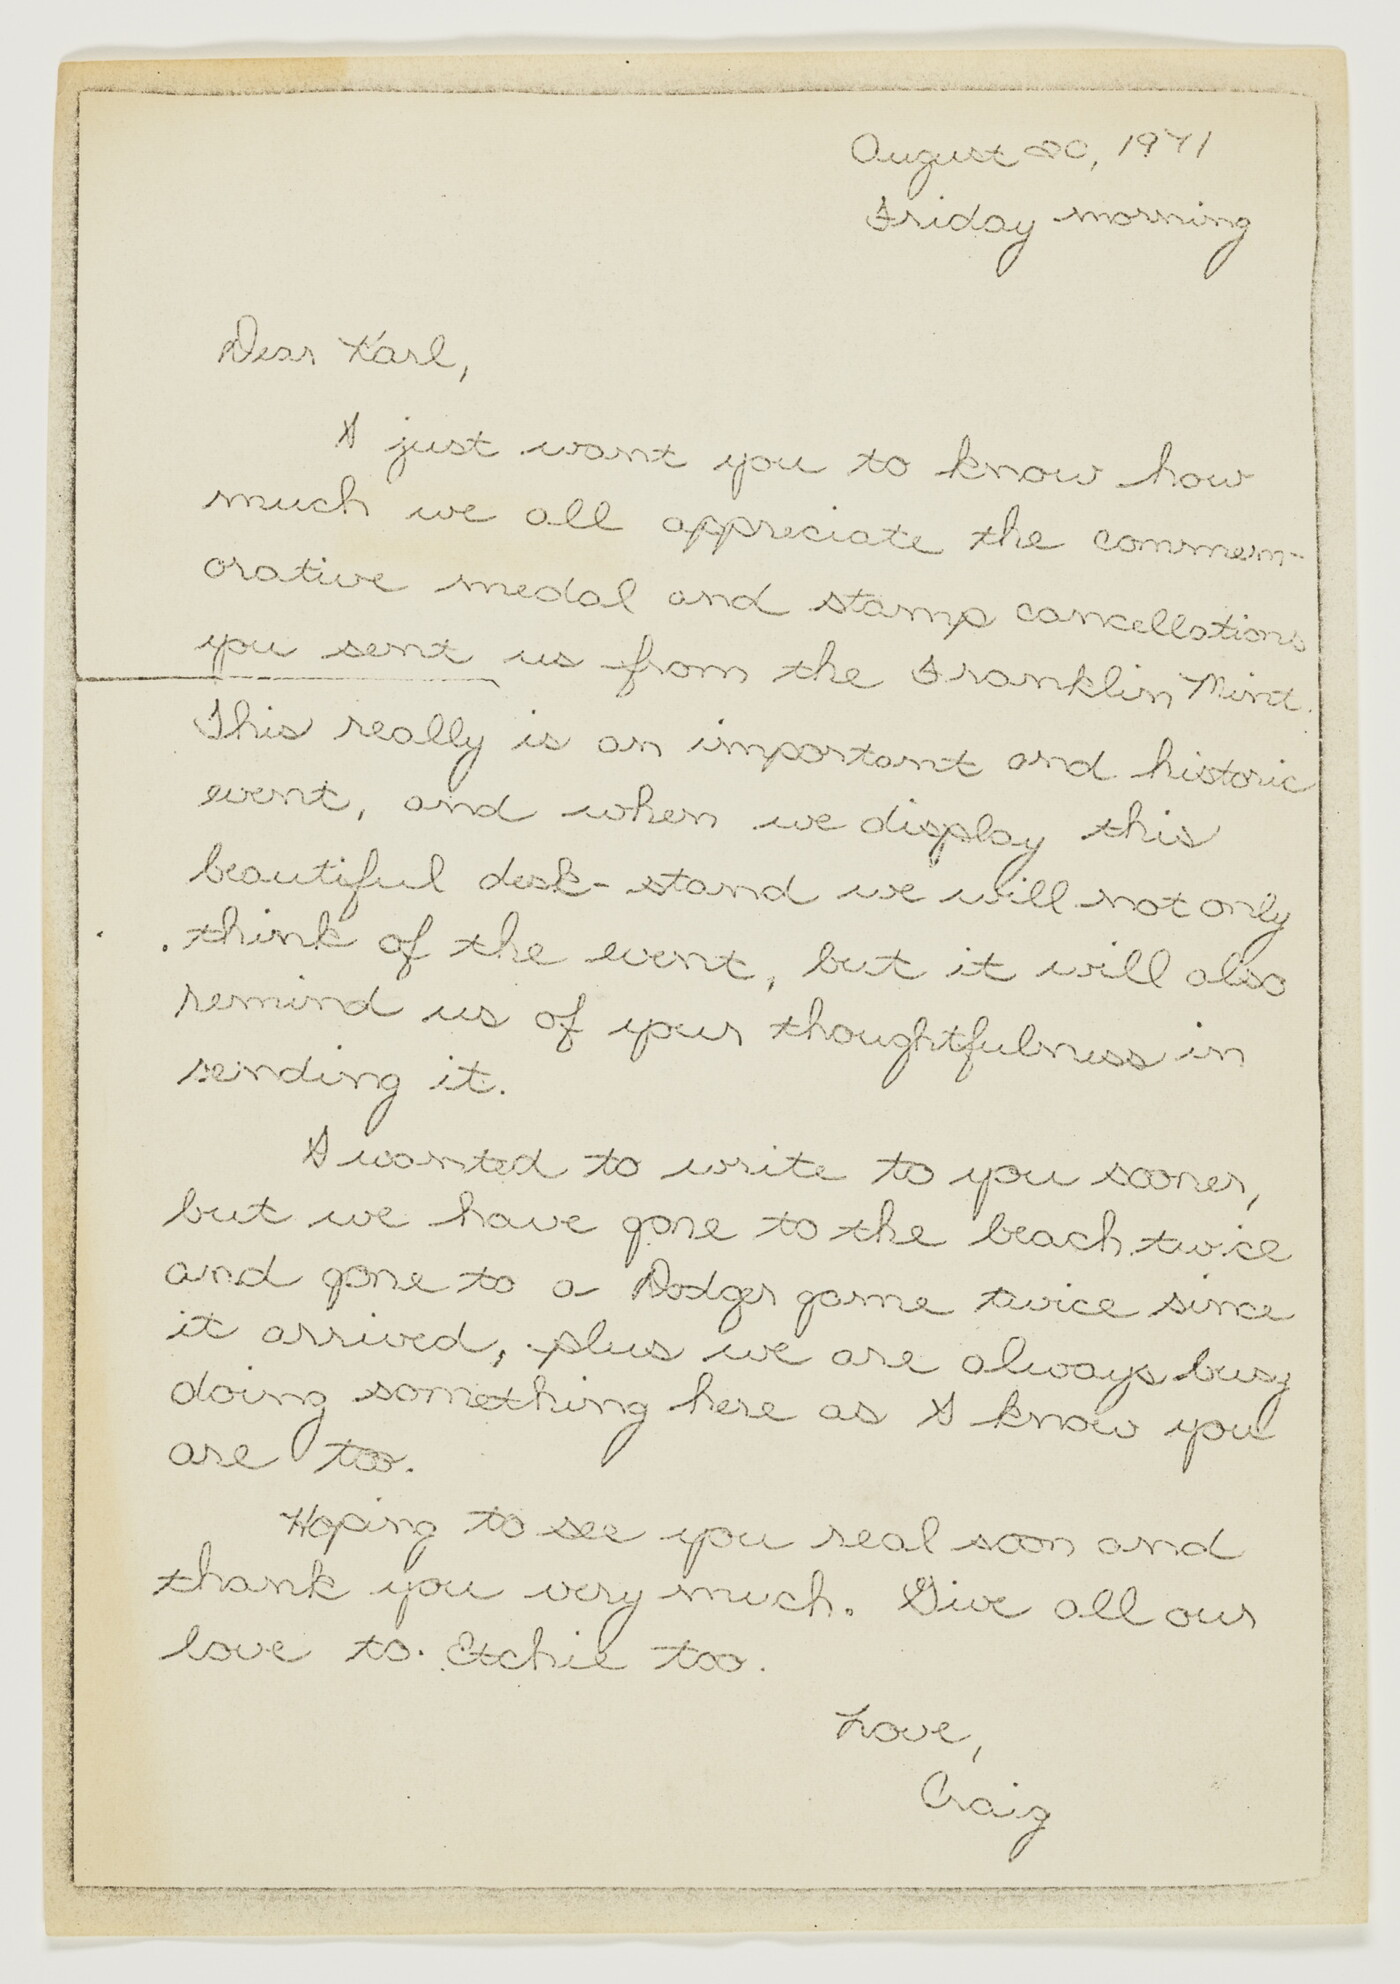 August 20, 1971
Friday morning
Dear Karl,
I just want you to know how
much we all appreciate the commem-
orative medal and stamp cancellations
you sent us from the Franklin Mint.
This really is an important and historic
event, and when we display this
beautiful desk-stand we will not only
think of the event, but it will also
remind us of your thoughtfulness in
sending it.
I wanted to write to you sooner,
but we have gone to the beach twice
and gone to a Dodger game twice since
it arrived, plus we are always busy
doing something here as I know you
are too.
Hoping to see you real soon and
thank you very much. Give all our
love to Etchie too.
Love,
Craig